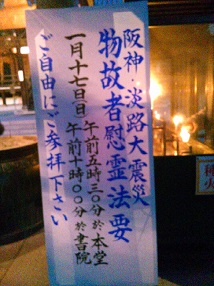 阪神・淡路大震災
物故者慰霊法要
一月十七日(日)
午前五時三〇分 於 本堂
午前十時〇〇分 於 書院
ご自由にご参拝下さい